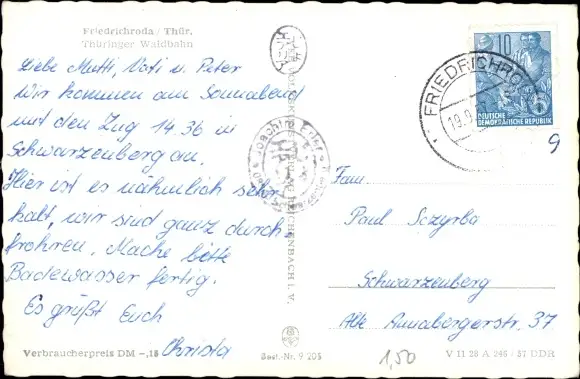 Friedrichroda / Thür.
Thüringer Waldbahn
Liebe Mutti, Vati u. Peter
Wir kommen am Sonnabend
mit den Zug 14.36 in
Schwarzenberg an.
Hier ist es nähmlich sehr
kalt, wir sind ganz durch
frohren. Mache bitte
Badewasser fertig.
Es grüßt Euch
Christa
Verbraucherpreis DM -,15
Best.-Nr. 9 205
REICHENBACH I. V.
Joachim
FRIEDRICHRODA
19.9.
10
DEUTSCHE
DEMOKRATISCHE REPUBLIK
9
Fam.
Paul Sczyrba
Schwarzenberg
Alte Annabergerstr. 37
1,50
V 11 28 A 246 - 57 DDR